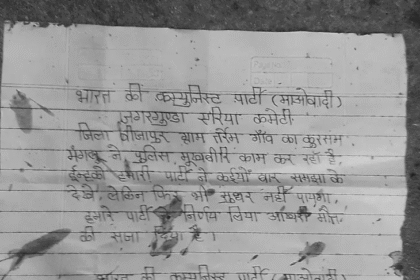 भारत की कम्युनिस्ट पार्टी (माओवादी)
जगरगुण्डा एरिया कमेटी
जिला बीजापुर ग्राम तर्रेम गाँव का कुरसम
मंगलू ने पुलिस मुखबीर काम कर रहा है,
इनको हमारी पार्टी ने कईयों बार समझा के
देखे, लेकिन फिर भी सुधर नहीं पाया,
हमारे पार्टी निर्णय लिया आखरी मौत
की सजा दिया है।
भारत की कम्युनिस्ट पार्टी (माओवादी)